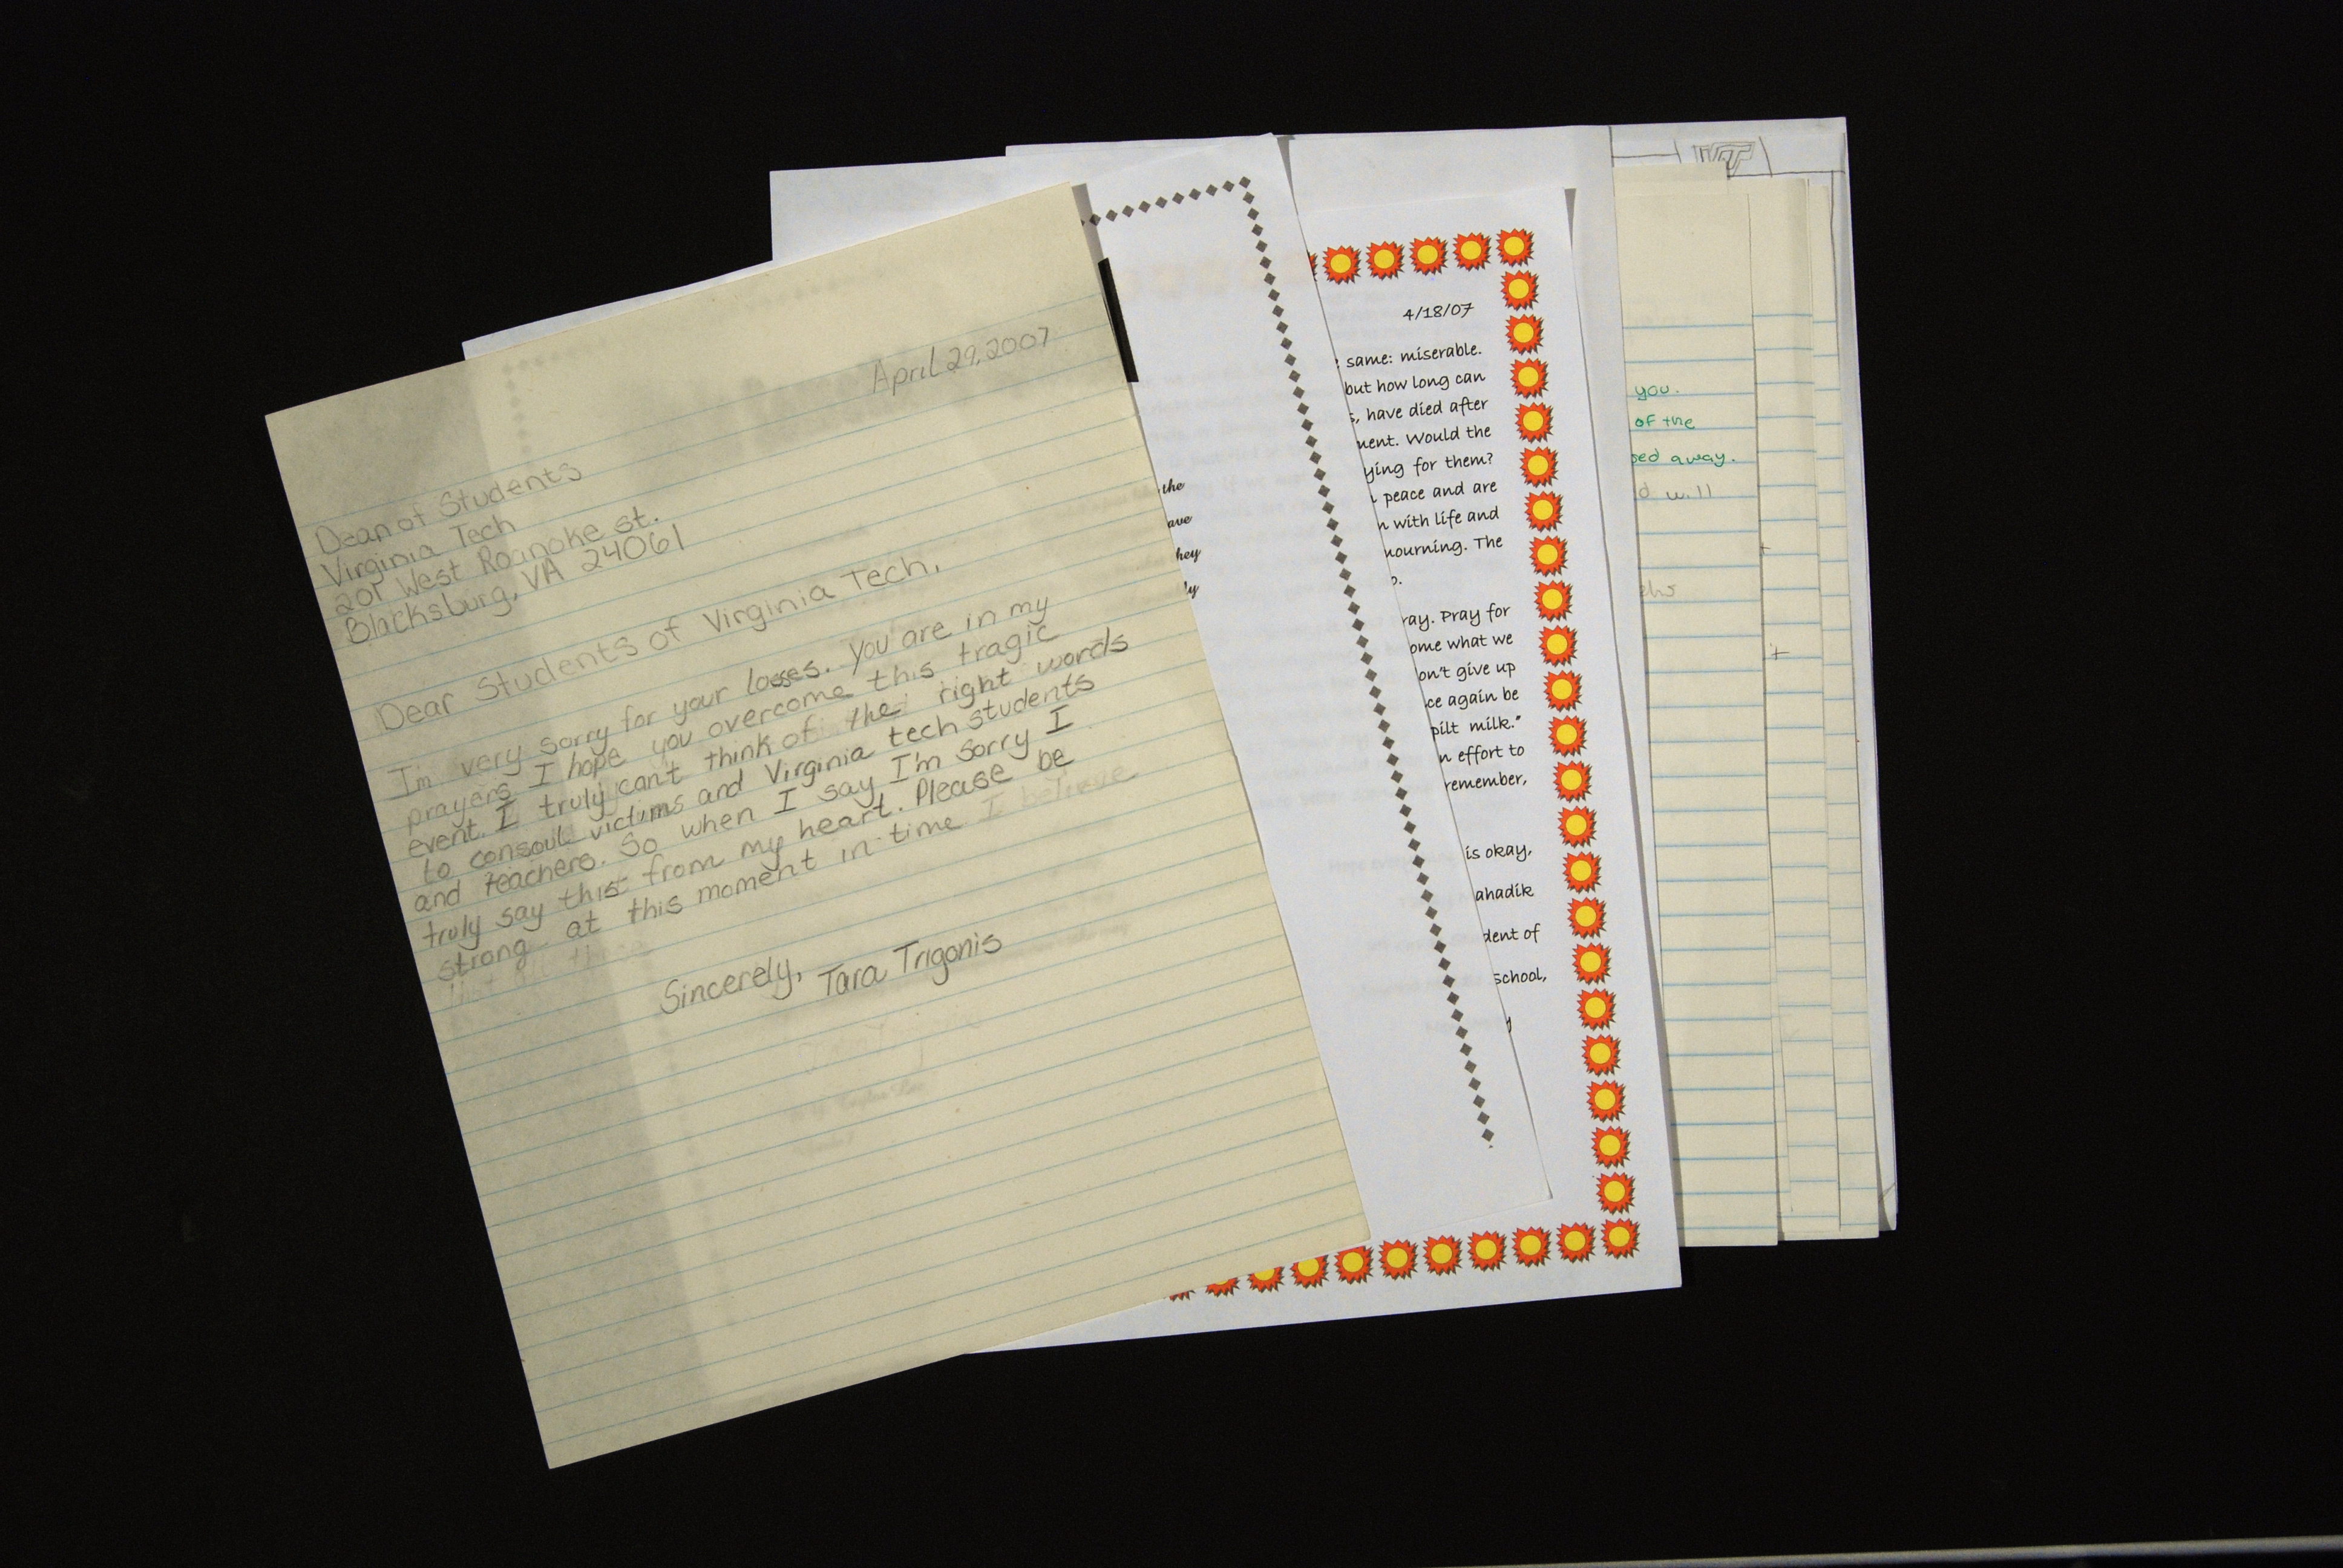 April 29, 2007
Dean of Students
Virginia Tech
201 West Roanoke st.
Blacksburg, VA 24061
Dear Students of Virginia Tech,
I'm very sorry for your losses. You are in my
prayers I hope you overcome this tragic
event. I truly can't think of the right words
to consoul victims and Virginia tech students
and teachers. So when I say I'm sorry I
truly say this from my heart. Please be
strong at this moment in time I believe
Sincerely,
Tara Trigonis
the
ave
hey
ly
4/18/07
same: miserable.
but how long can
s, have died after
ment. Would the
ying for them?
peace and are
n with life and
mourning. The
o.
ray. Pray for
ome what we
on't give up
ce again be
pilt milk."
n effort to
remember,
is okay,
ahadik
dent of
School,
VT
you.
of the
sed away.
d will